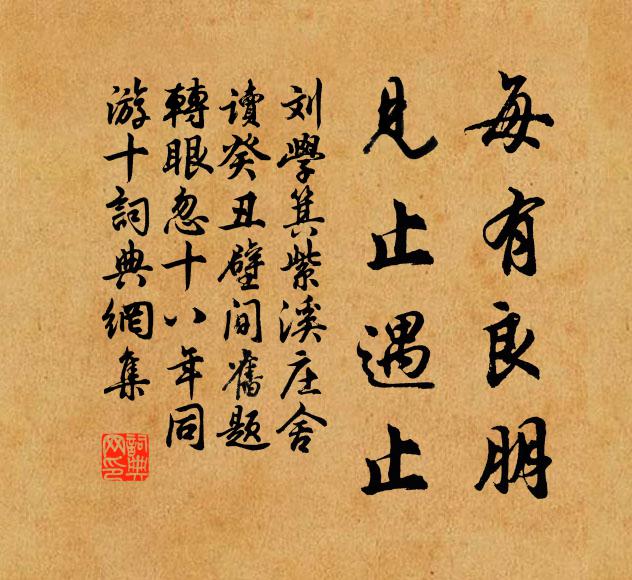 每有良朋
見止遇止
刘學箕紫溪庄舍
讀癸丑壁间舊题
轉眼忽十八年同
游十詞典網集
詞典网印